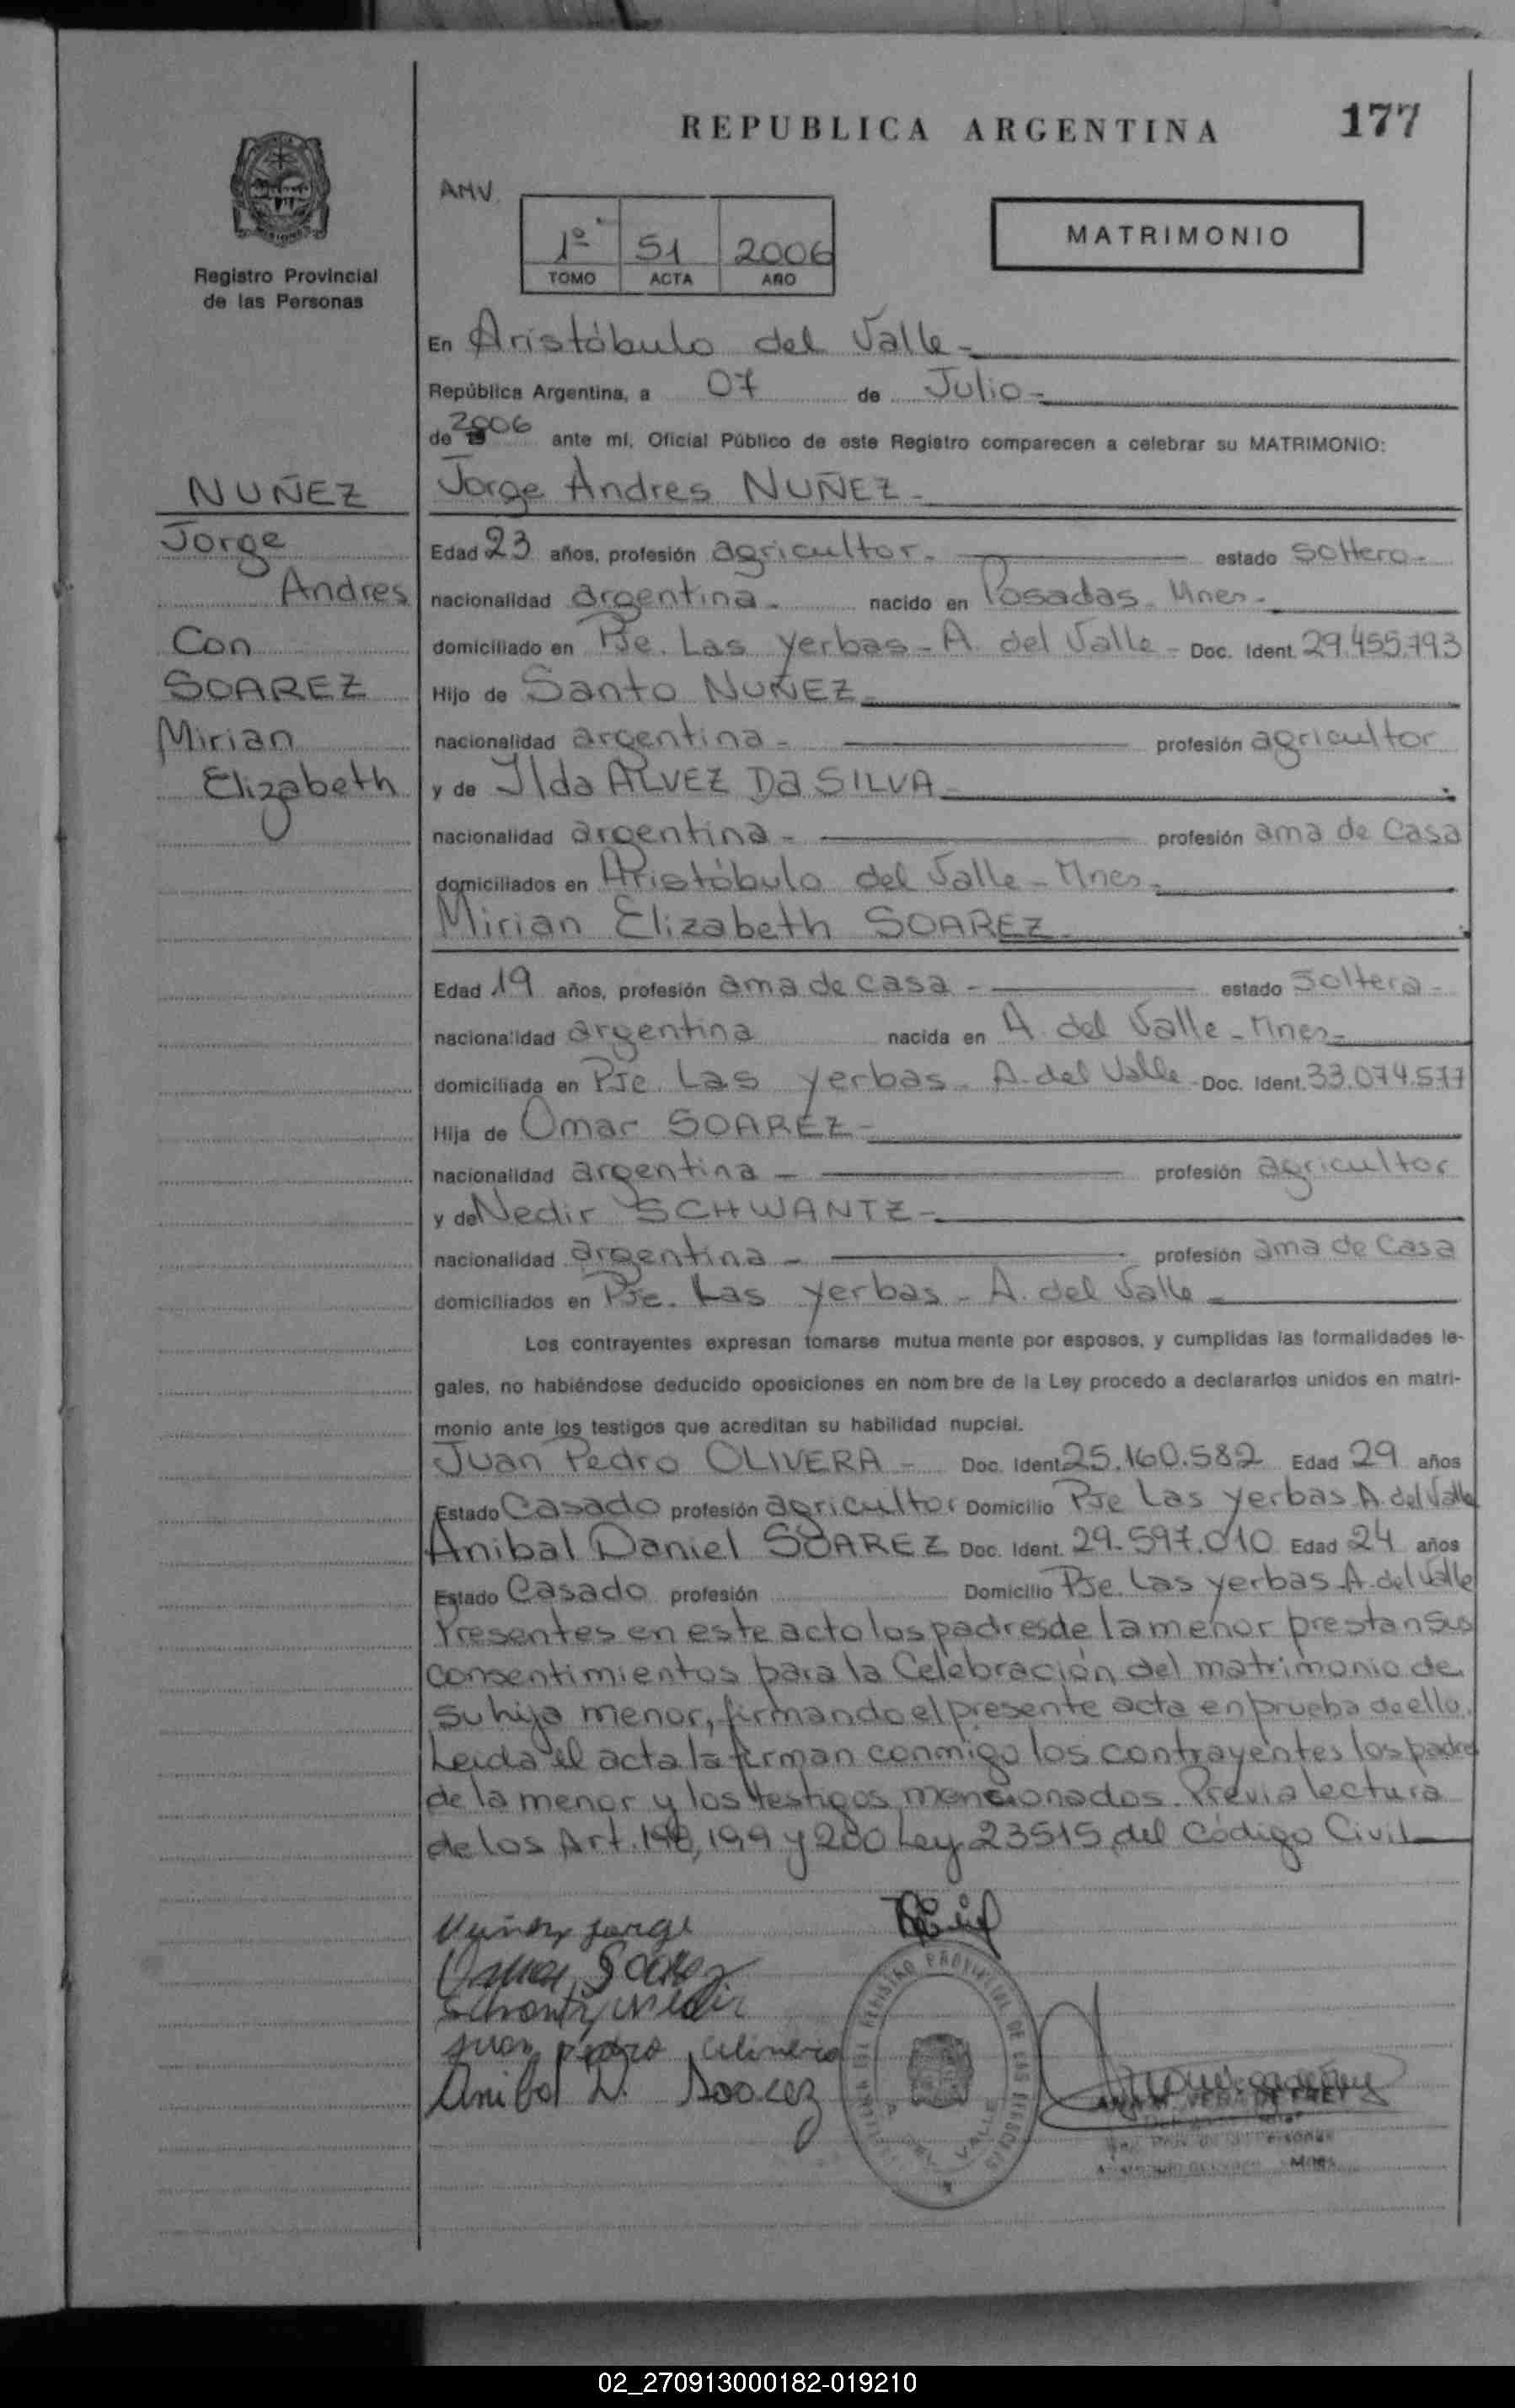 REPUBLICA ARGENTINA
177
Registro Provincial
de las Personas
AMV.
1º 51 2006
TOMO ACTA AÑO
MATRIMONIO
En Aristóbulo del Valle -
República Argentina, a 07 de Julio -
de 2006 ante mí, Oficial Público de este Registro comparecen a celebrar su MATRIMONIO:
NUÑEZ
Jorge
Andres
Con
SOAREZ
Mirian
Elizabeth
Jorge Andres NUÑEZ -
Edad 23 años, profesión agricultor - estado soltero -
nacionalidad argentina - nacido en Posadas - Mnes -
domiciliado en Pje. Las Yerbas - A. del Valle - Doc. Ident. 29.455.793
Hijo de Santo NUÑEZ
nacionalidad argentina - profesión agricultor
y de Ilda ALVEZ Da SILVA -
nacionalidad argentina - profesión ama de casa
domiciliados en Aristóbulo del Valle - Mnes -
Mirian Elizabeth SOAREZ -
Edad 19 años, profesión ama de casa - estado soltera -
nacionalidad argentina nacida en A. del Valle - Mnes -
domiciliada en Pje. Las Yerbas - A. del Valle - Doc. Ident. 33.074.577
Hija de Omar SOAREZ -
nacionalidad argentina - profesión agricultor
y de Nedir SCHWANTZ -
nacionalidad argentina - profesión ama de casa
domiciliados en Pje. Las Yerbas - A. del Valle -
Los contrayentes expresan tomarse mutua mente por esposos, y cumplidas las formalidades le-
gales, no habiéndose deducido oposiciones en nom bre de la Ley procedo a declararlos unidos en matri-
monio ante los testigos que acreditan su habilidad nupcial.
Juan Pedro OLIVERA - Doc. Ident. 25.160.582 Edad 29 años
Estado Casado profesión agricultor Domicilio Pje Las Yerbas A. del Valle
Anibal Daniel SOAREZ Doc. Ident. 29.597.010 Edad 24 años
Estado Casado profesión Domicilio Pje. Las Yerbas - A. del Valle
Presentes en este acto los padres de la menor prestan sus
consentimientos para la Celebración del matrimonio de
su hija menor, firmando el presente acta en prueba de ello.
Leida el acta la firman conmigo los contrayentes los padres
de la menor y los testigos mencionados. Previa lectura
de los Art. 198, 199 y 200 Ley 23515 del Código Civil
Nuñez Jorge
Omar Soarez
Schwantz Nedir
Juan Pedro Olivera
Anibal D. Soarez
REGISTRO PROVINCIAL DE LAS PERSONAS
VALLE
02_270913000182-019210